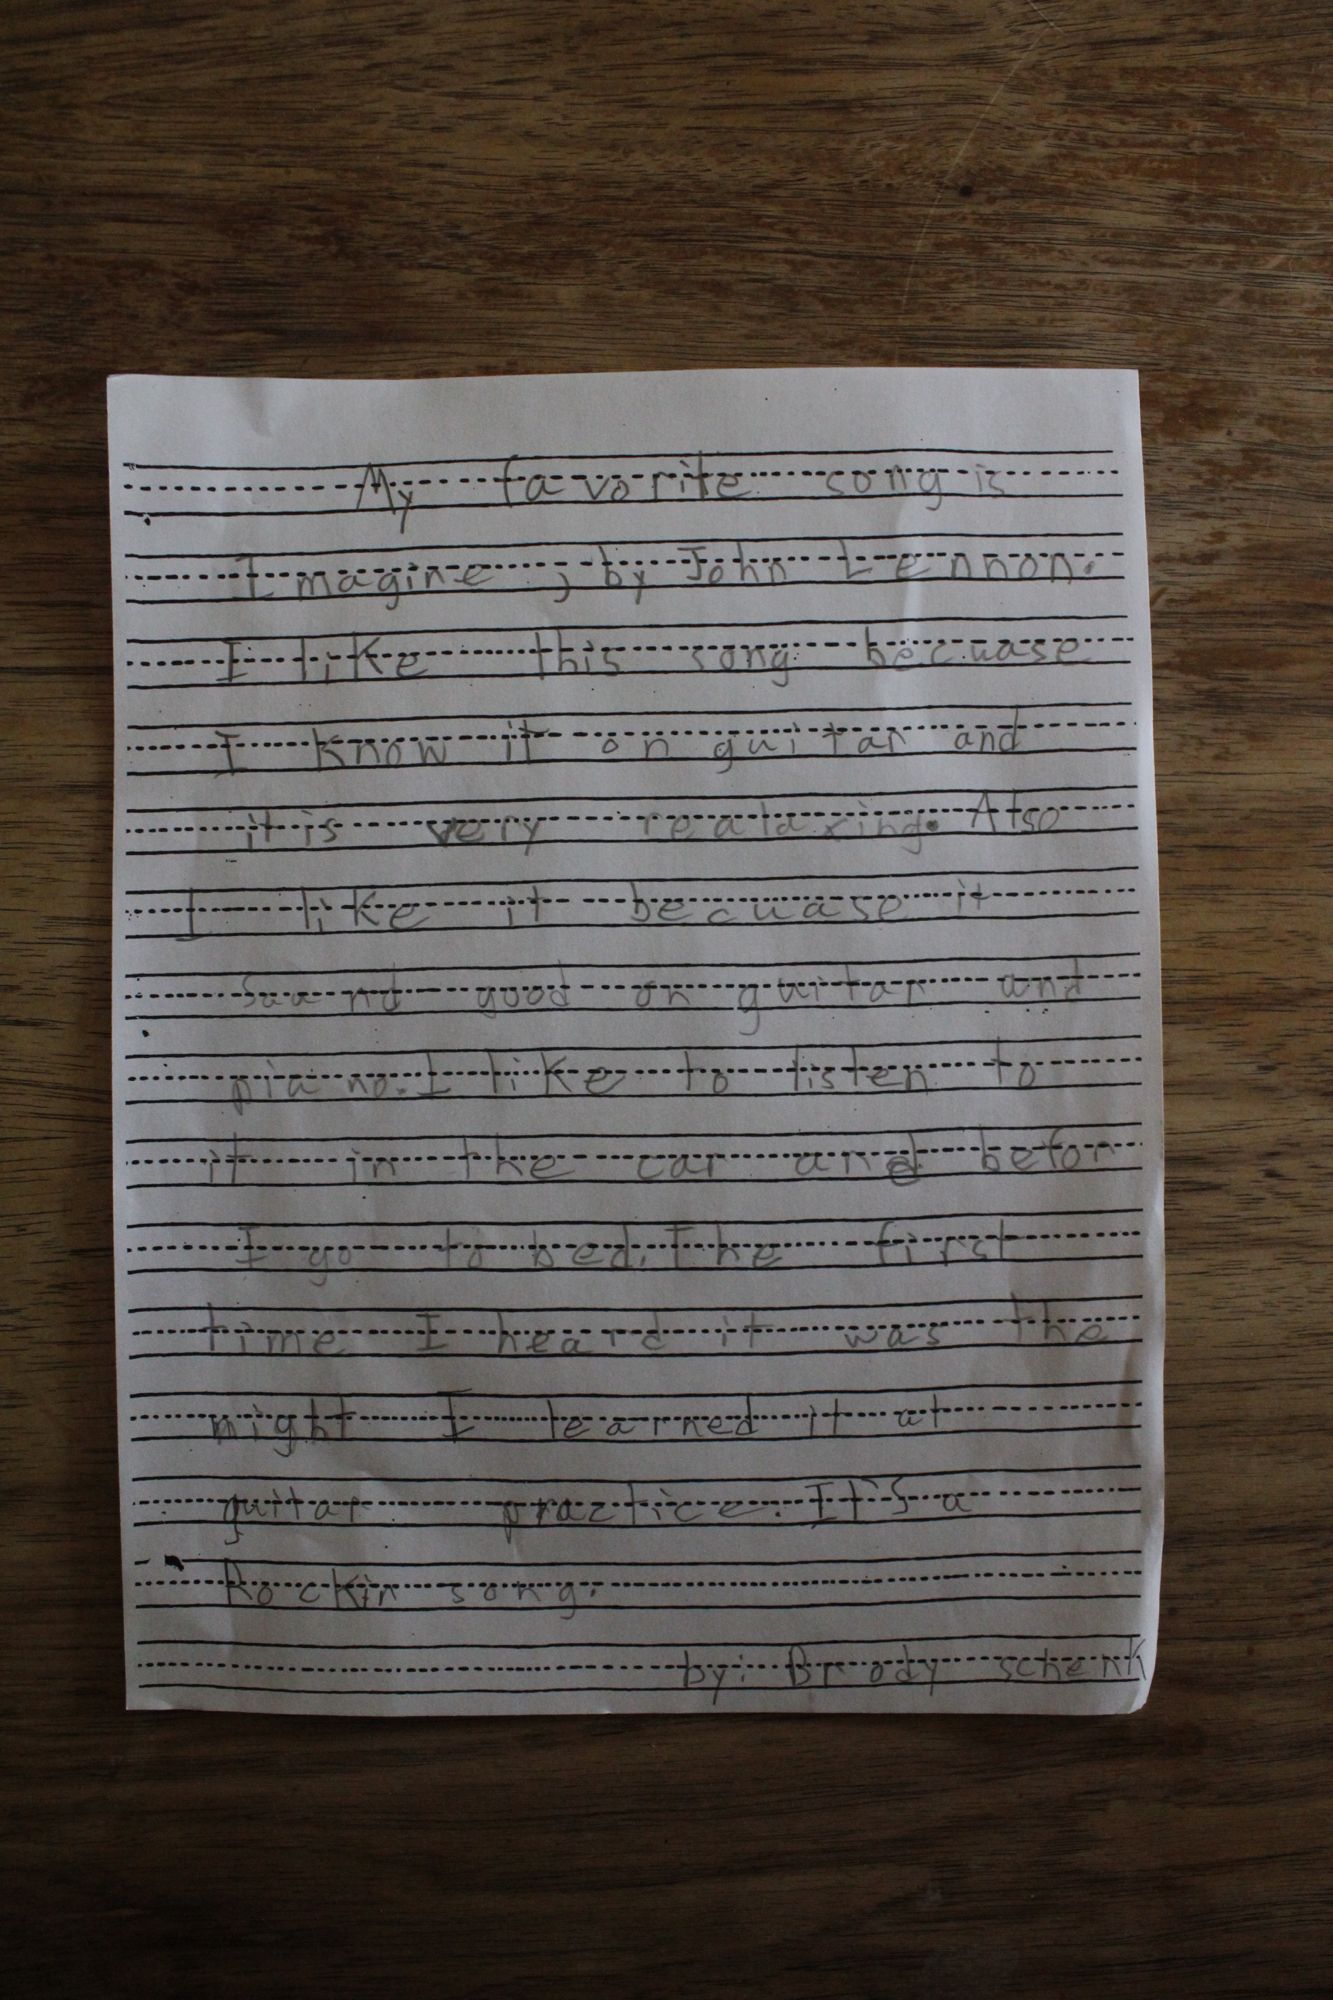 My favorite song is
Imagine, by John Lennon.
I like this song becuase
I know it on guitar and
it is very realaxing. Also
I like it becuase it
saund good on guitar and
piano. I like to listen to
it in the car and befor
I go to bed. The first
time I heard it was the
night I learned it at
guitar practice. It's a
Rockin song.
by: Brody schenk